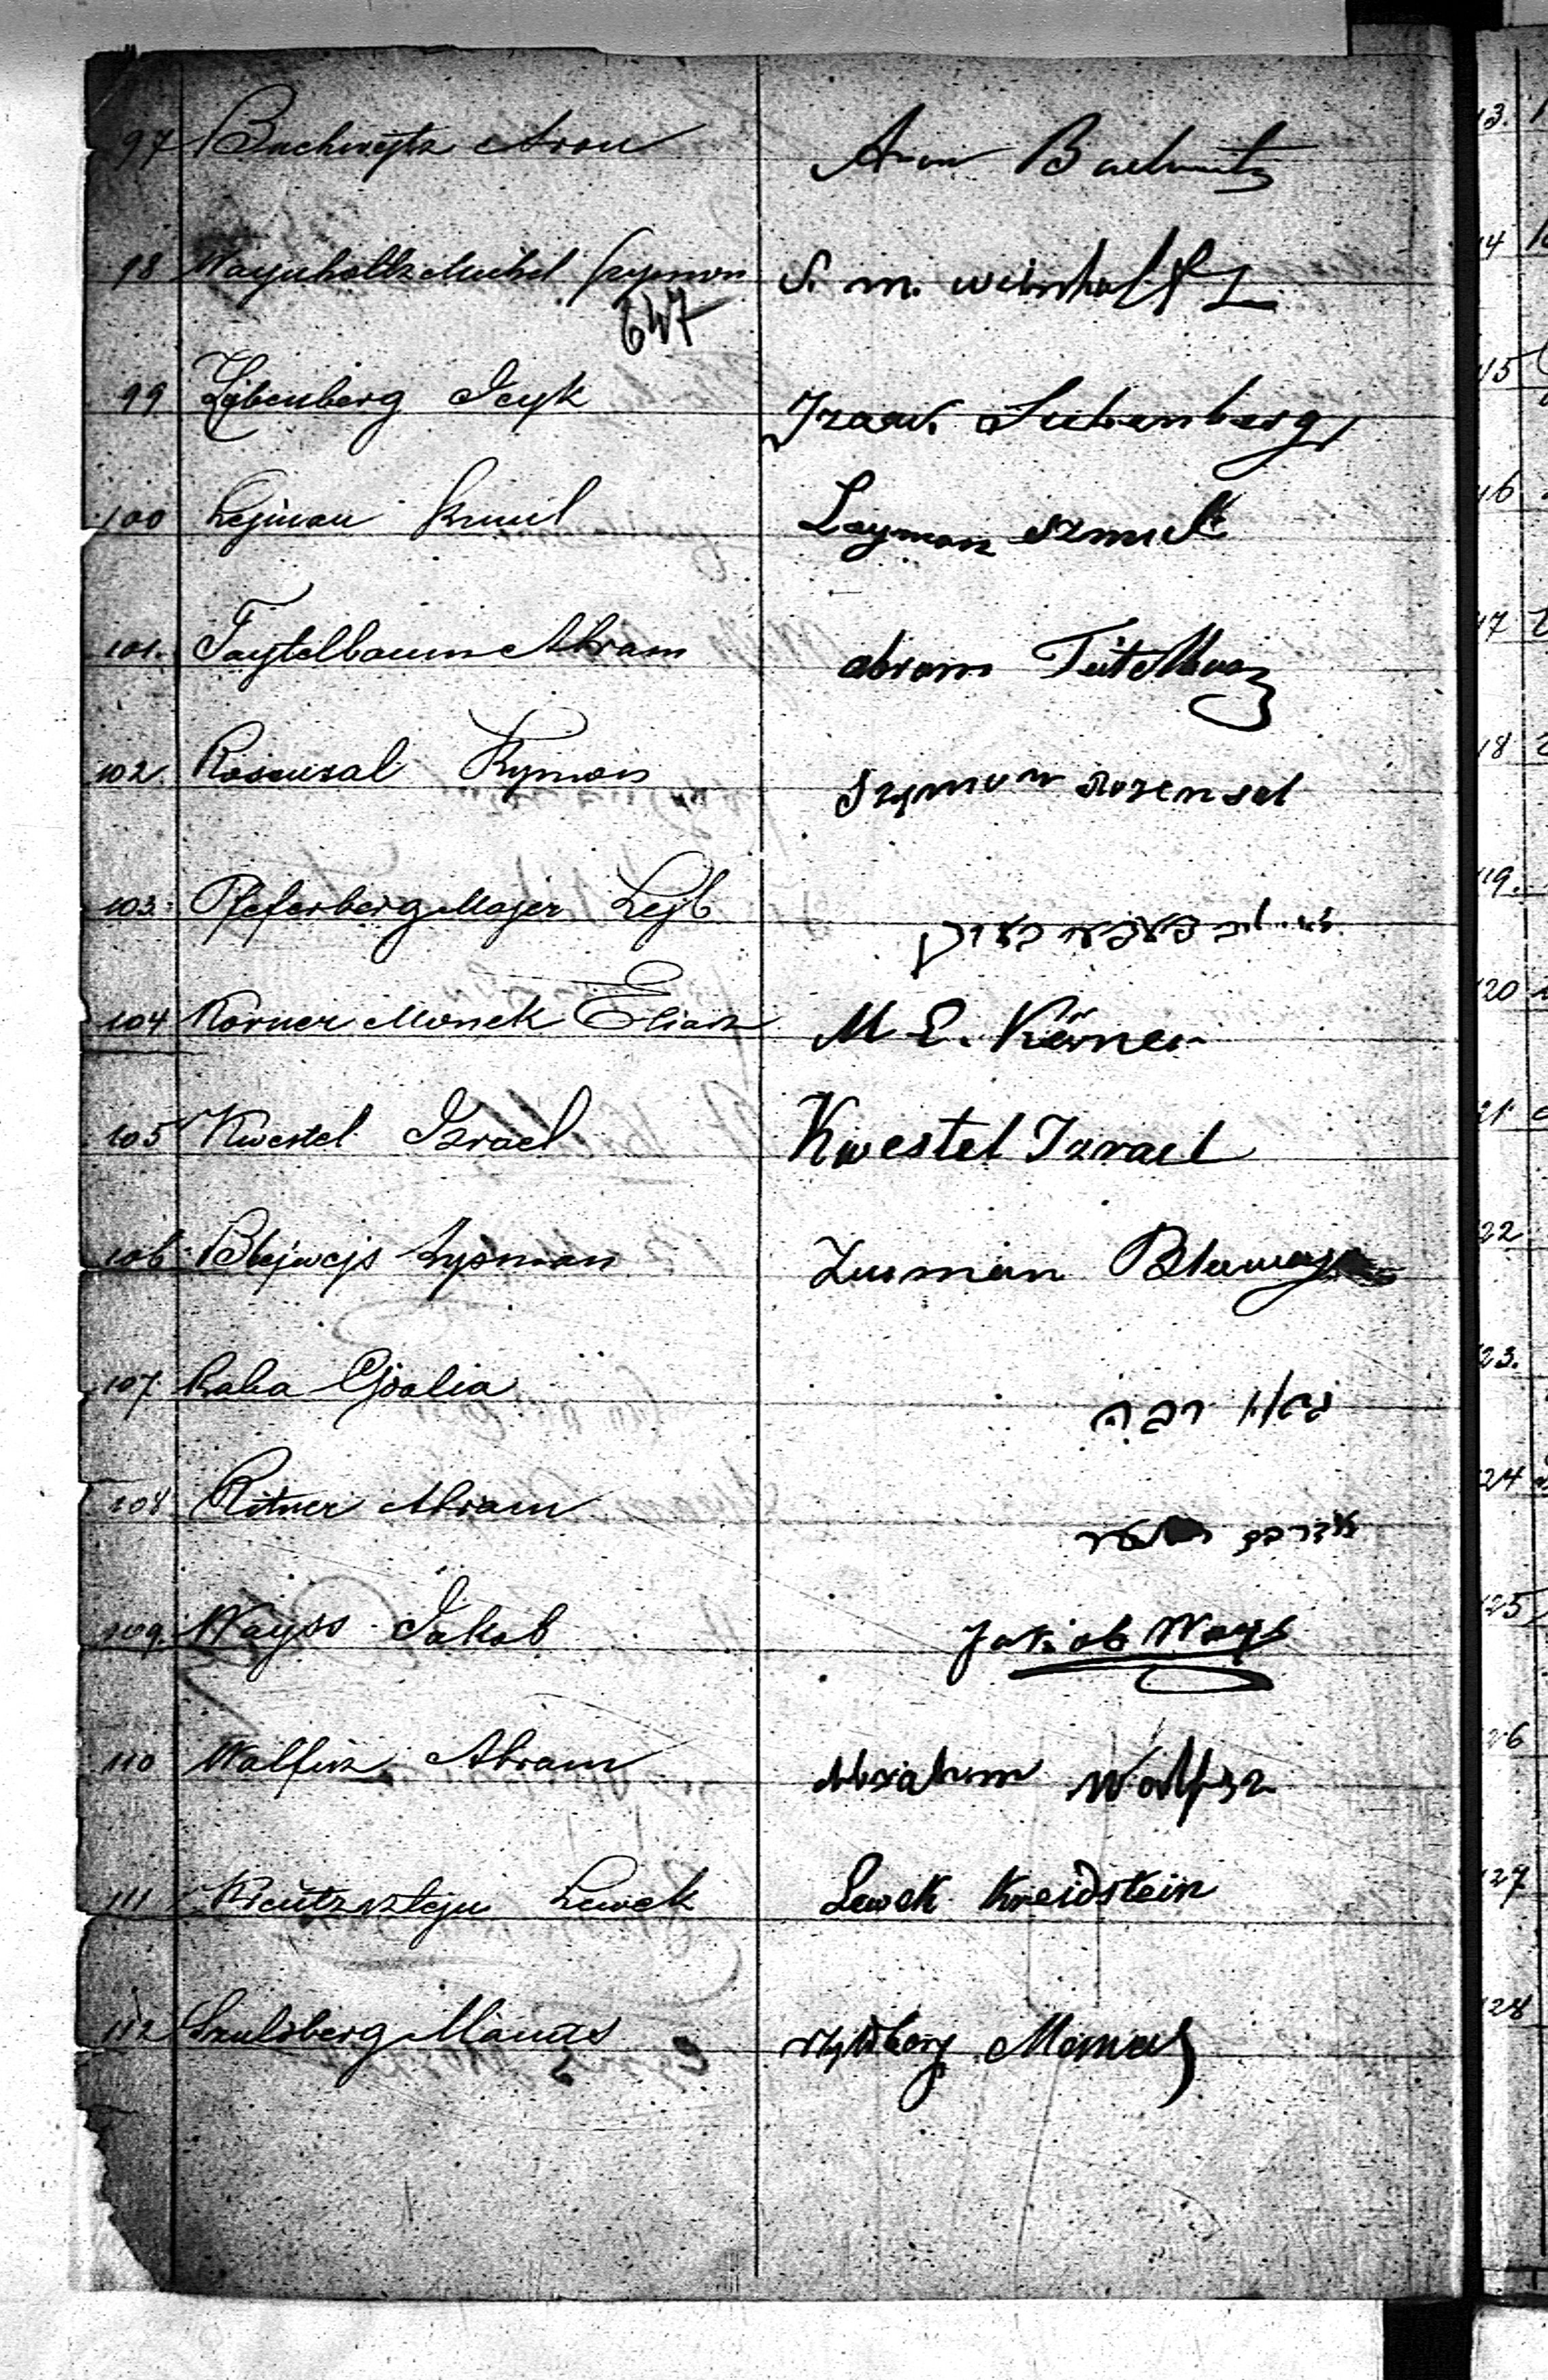 97 Buchweytz Aron Aron Buchweitz
98 Waynholtz Michel Szymon S. M. Weinholtz
647
99 Lejbenberg Icyk Izaak Liebenberg
100 Lejman Szmul Leyman Szmul
101. Taytelbaum Abram Abram Teitelbaum
102. Rosensal Szymon Szymon Rosensal
103. Pfeferberg Majer Lejb
104 Korner Monek Eliasz M E. Körner
105 Kwestel Izrael Kwestel Izrael
106 Blejwejs Zysman Zusman
107. Raba Gdalia גדלי' רבה
108 Ritner Abram אברהם
109. Wayss Jakob Jakob Ways
110 Walfisz Abram Abraham Wolfisz
111 Kreutzsztejn Lewek Lewek Kreidstein
112 Szulsberg Manas Manas
13.
14
15
16
17
18
19.
20
21
22
23.
24
25
26
27
28